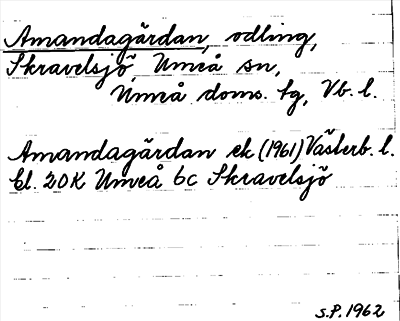 Amandagärdan, odling,
Skravelsjö, Umeå sn,
Umeå doms. tg, Vb. l.
Amandagärdan ek (1961) Västerb. l.
bl. 20K Umeå 6c Skravelsjö
S.P. 1962